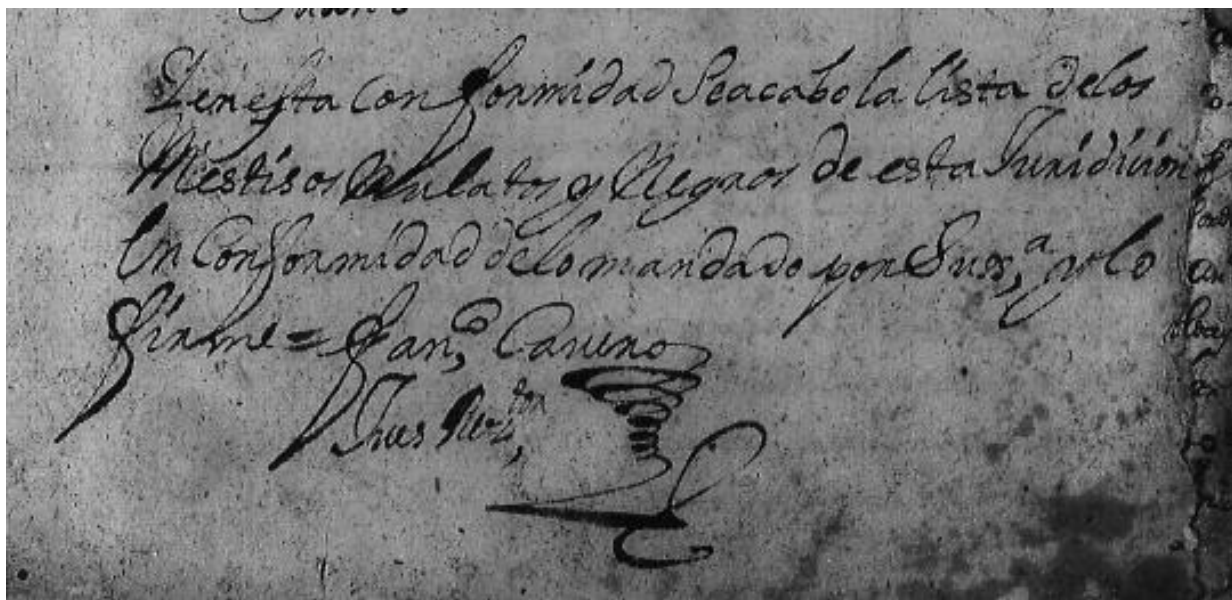 Y en esta Conformidad Seacabo la lista delos
Mestisos Mulatos y Negros de esta Juridicion
En Conformidad delo mandado por Susª, y lo
firme = Fran,co Caveno
Jues